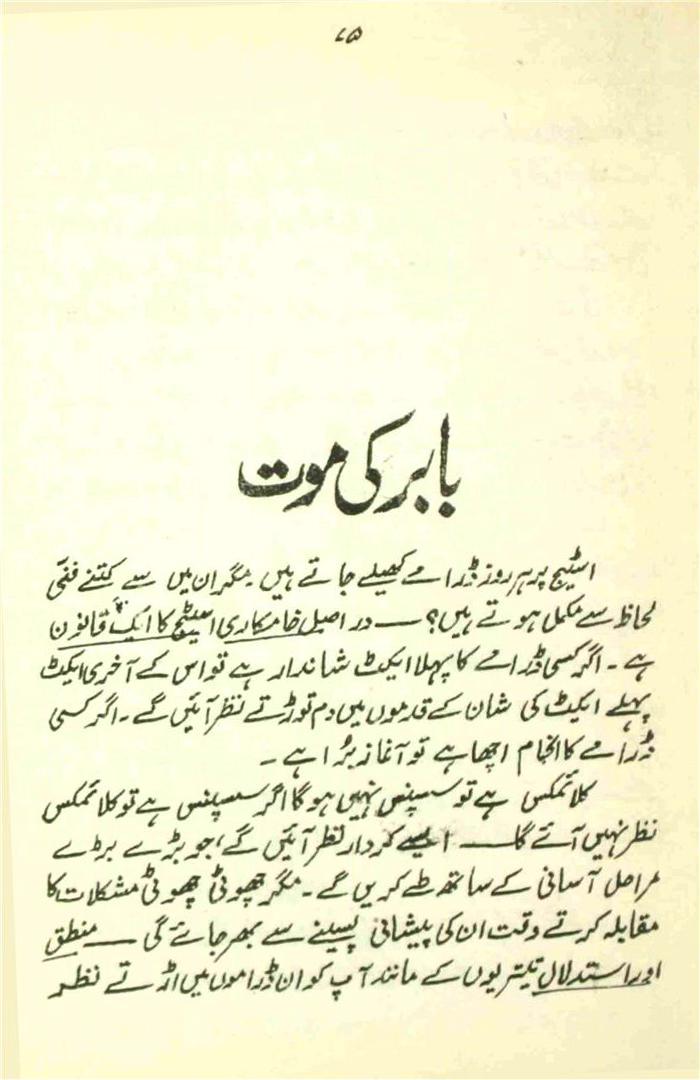 ۷۵
بابر کی موت
اسٹیج پر ہر روز ڈرامے کھیلے جاتے ہیں۔ مگر ان میں سے کتنے فنّی
لحاظ سے مکمل ہوتے ہیں؟ — در اصل خامکاری اسٹیج کا ایک قانون
ہے۔ اگر کسی ڈرامے کا پہلا ایکٹ شاندار ہے تو اس کے آخری ایکٹ
پہلے ایکٹ کی شان کے قدموں میں دم توڑتے نظر آئیں گے۔ اگر کسی
ڈرامے کا انجام اچھا ہے تو آغاز بُرا ہے۔
کلائمکس ہے تو سسپنس نہیں ہوگا اگر سسپنس ہے تو کلائمکس
نظر نہیں آئے گا — ایسے کردار نظر آئیں گے، جو بڑے بڑے
مراحل آسانی کے ساتھ طے کریں گے۔ مگر چھوٹی چھوٹی مشکلات کا
مقابلہ کرتے وقت ان کی پیشانی پسینے سے بھر جائے گی — منطق
اور استدلال تیتریوں کے مانند آپ کو ان ڈراموں میں اڑتے نظر